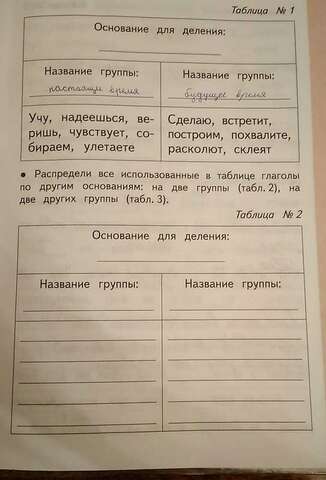 Таблица № 1
Основание для деления:
Название группы: Название группы:
настоящее время будущее время
Учу, надеешься, ве- Сделаю, встретит,
ришь, чувствует, со- построим, похвалите,
бираем, улетаете расколют, склеят
• Распредели все использованные в таблице глаголы
по другим основаниям: на две группы (табл. 2), на
две других группы (табл. 3).
Таблица № 2
Основание для деления:
Название группы: Название группы: